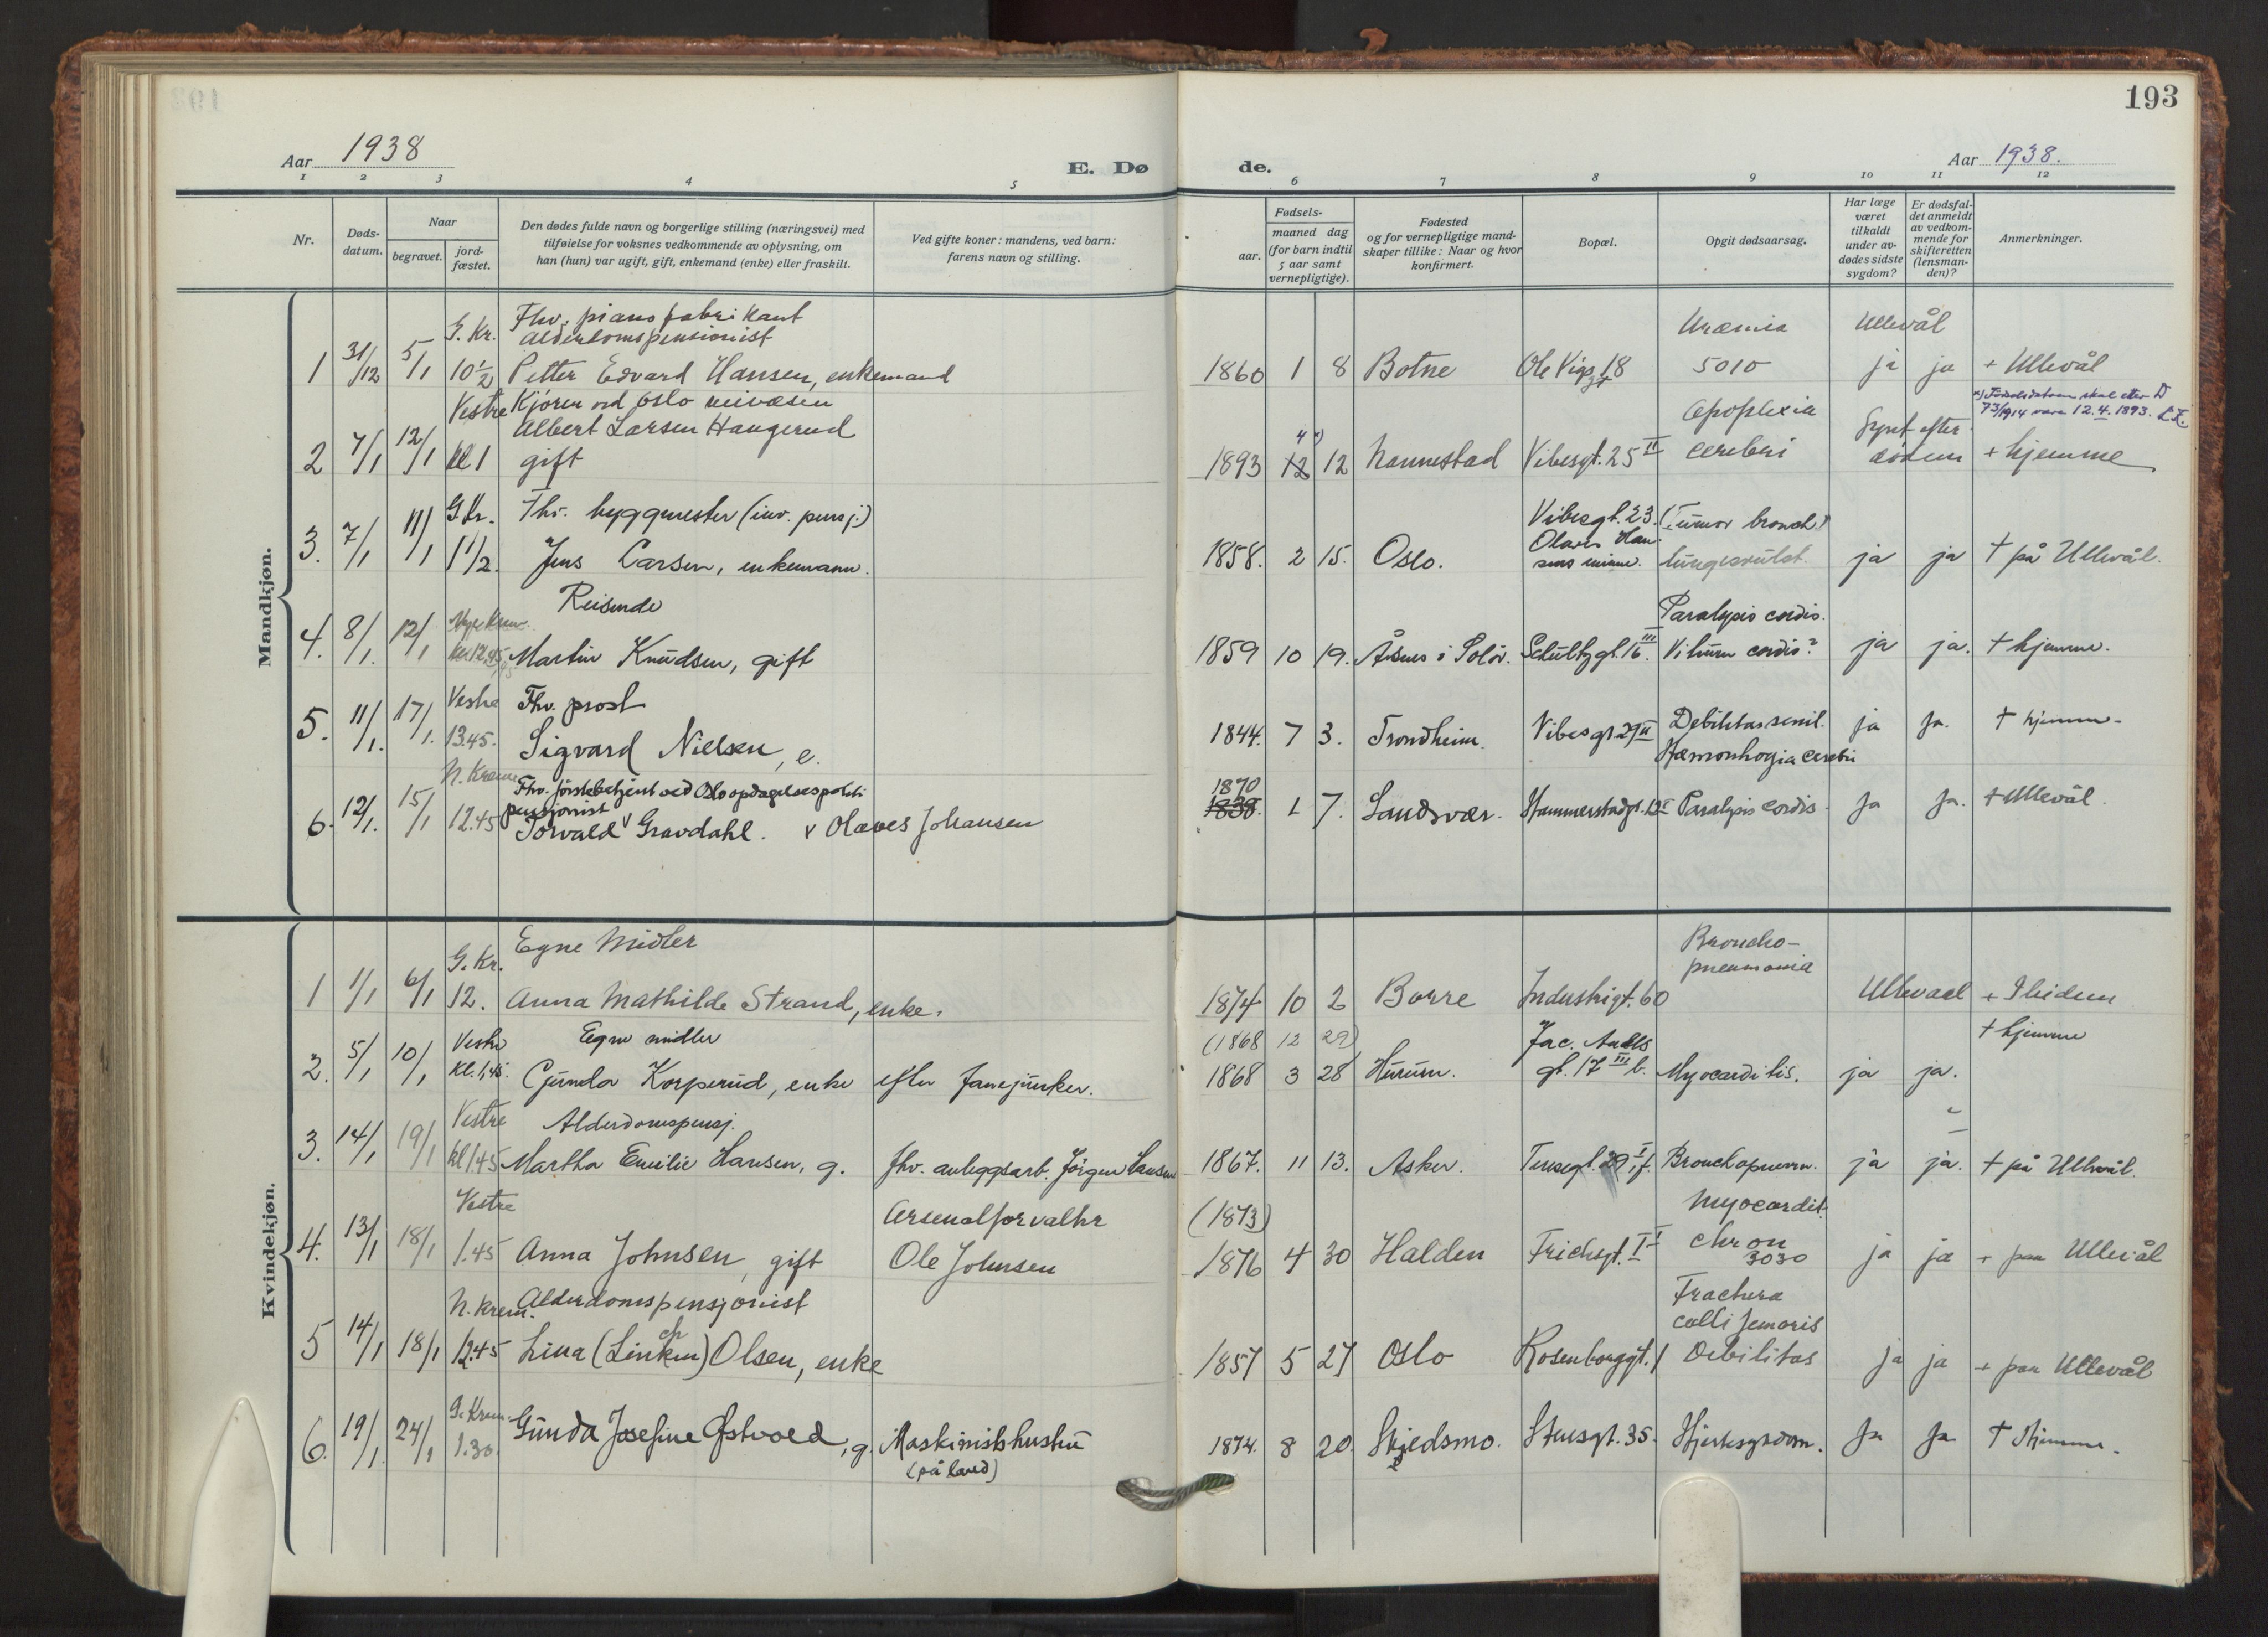 193
Aar 1938
E. Dø
de.
Aar 1938.
1 2 3 4 5 6 7 8 9 10 11 12
Nr.
Døds-
datum.
Naar
begravet.
jord-
fæstet.
Den dødes fulde navn og borgerlige stilling (næringsvei) med
tilføielse for voksnes vedkommende av oplysning, om
han (hun) var ugift, gift, enkemand (enke) eller fraskilt.
Ved gifte koner: mandens, ved barn:
farens navn og stilling.
Fødsels-
aar.
maaned dag
(for barn indtil
5 aar samt
vernepligtige).
Fødested
og for vernepligtige mand-
skaper tillike: Naar og hvor
konfirmert.
Bopæl.
Opgit dødsaarsag.
Har læge
været
tilkaldt
under av-
dødes sidste
sygdom?
Er dødsfal-
det anmeldt
av vedkom-
mende for
skifteretten
(lensman-
den)?
Anmerkninger.
Mandkjøn.
G. Kr. Fhv. pianofabrikant
Alderdomspensionist
Uræmia Ullevål
1 31/12 5/1 10 1/2 Petter Edvard Hansen, enkemand 1860 1 8 Botne Ole Vigs gt 18 5010 ja ja + Ullevål
Vestre Kjører ved Oslo veivæsen
x) Fødselsdatoen skal efter D
73/1914 være 12.4.1893.
Albert Larsen Haugerud 4 x) Apoplexia Synt efter
2 7/1 12/1 kl 1 gift 1893 12 12 Nannestad Vibesgt. 25 II cerebri døden + hjemme
G. Kr. Fhv. byggmester (inv. pensj.) Vibesgt. 23. (Tumor bronch.)
Olaves Han-
3. 7/1 11/1 1 1/2. Jens Larsen, enkemann. 1858. 2 15. Oslo. sens minne. lungesvulst. ja ja † på Ullevål.
Reisende Paralysis cordis.
4. 8/1. 12/1 kl. 12,45 Martin Knudsen, gift 1859 10 19. Åsnes i Solør. Schultzgt. 16 III. Vitium cordis? ja ja. † hjemme.
Vestre Fhv. prost
5. 11/1. 17/1. 13.45. Sigvard Nielsen, e. 1844. 7 3. Trondheim. Vibesgt. 29 II Debilitas senil. ja Ja. † hjemme.
Hæmorrhagia cerebri
N. Krem. Fhv. førstebetjent ved Oslo opdagelsespoliti
pensjonist 1870
6. 12/1. 15/1 12.45 Torvald v Gravdahl. v Olaves Johansen 1838. 1 7. Sandsvær. Hammerstadgt. 12 I Paralysis cordis. Ja Ja. † Ullevål.
Kvindekjøn.
G. Kr. Egne Midler Broncho-
pneumonia
1 1/1 6/1 12. Anna Mathilde Strand, enke. 1874 10 2 Borre Industrigt. 60 Ullevaal + Ibidem
Vestre Egne midler (1868 12 29) Jac. Aalls † hjemme
2. 5/1 10/1 kl. 1,45. Gunda Korperud, enke efter fanejunker. 1868 3 28 Hurum. gt. 17 III b. Myocarditis. ja ja.
Vestre Alderdomspensj.
3. 14/1 19/1 kl 1.45 Martha Emilie Hansen, g. fhv. anleggsarb. Jørgen Hansen 1867. 11 13. Asker. Bronchopneum. ja ja. † på Ullevål.
Vestre Arsenalforvalter (1873) Myocardit.
4. 13/1 18/1 1.45 Anna Johnsen, gift Ole Johnsen 1876 4 30 Halden chron 3030 ja ja + paa Ullevål
N. Krem. Alderdomspensjonist Fractura
colli femoris
5 14/1 18/1 12.45 Lina (Linken) ch Olsen, enke 1857 5 27 Oslo Rosenborggt. 1 Debilitas ja ja + paa Ullevål
G. Krem.
6. 19/1. 24/1 1.30. Gunda Josefine Østvold, g. Maskinistshustru 1874. 8 20 Skjedsmo. Stensgt. 35. Hjertesygdom. Ja Ja † Hjemme.
(på land)